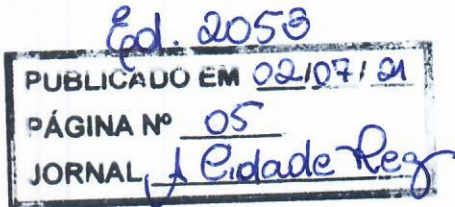 Ed. 2053
PUBLICADO EM 02/07/21
PÁGINA Nº 05
JORNAL A Cidade Reg